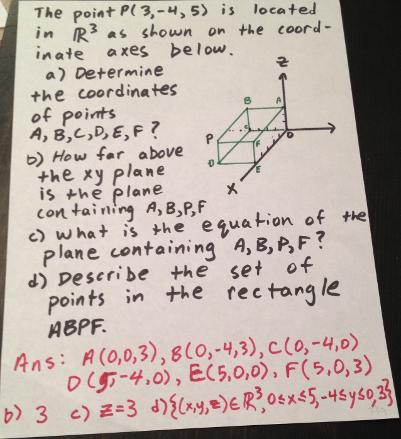 The point P(3,-4,5) is located
in ℝ³ as shown on the coord-
inate axes below.
a) Determine
the coordinates
of points
A, B, C, D, E, F ?
b) How far above
the xy plane
is the plane
containing A, B, P, F
c) What is the equation of the
plane containing A, B, P, F ?
d) Describe the set of
points in the rectangle
ABPF.
Z
B
A
P
F
O
D
E
X
Ans: A(0,0,3), B(0,-4,3), C(0,-4,0)
D(5,-4,0), E(5,0,0), F(5,0,3)
b) 3 c) z=3 d) {(x,y,z)∈ℝ³, 0≤x≤5, -4≤y≤0, 3}